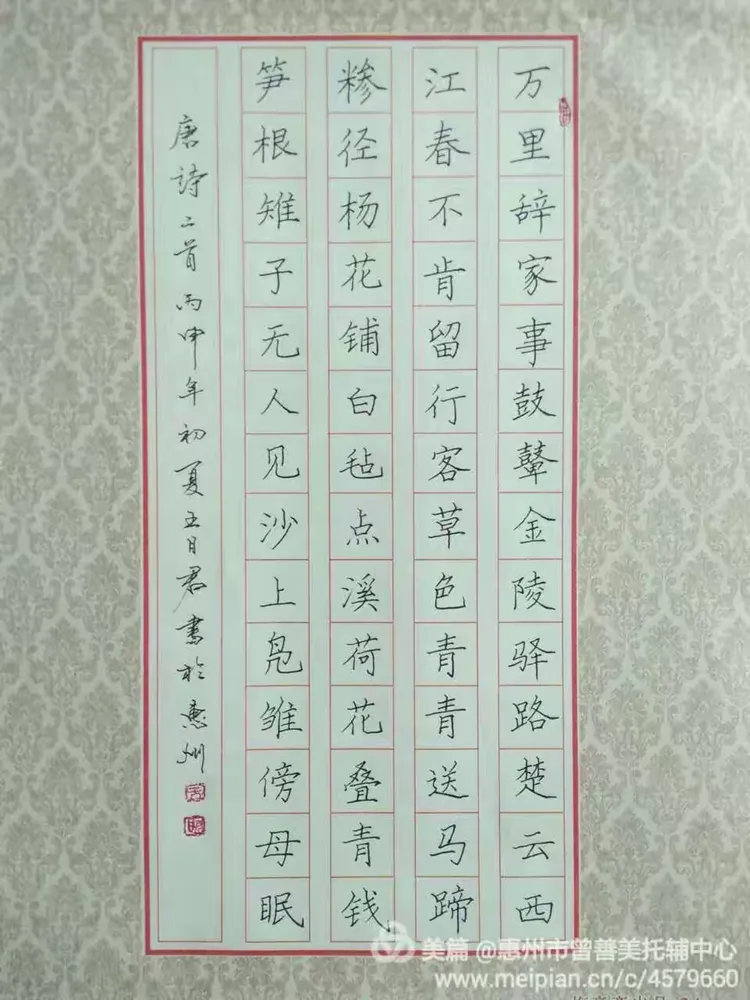 万里辞家事鼓鼙金陵驿路楚云西
江春不肯留行客草色青青送马蹄
糁径杨花铺白毡点溪荷花叠青钱
笋根雉子无人见沙上凫雏傍母眠
唐诗二首丙申年初夏五日君书於惠州
美篇@惠州市曾善美托辅中心
www.meipian.cn/c/4579660